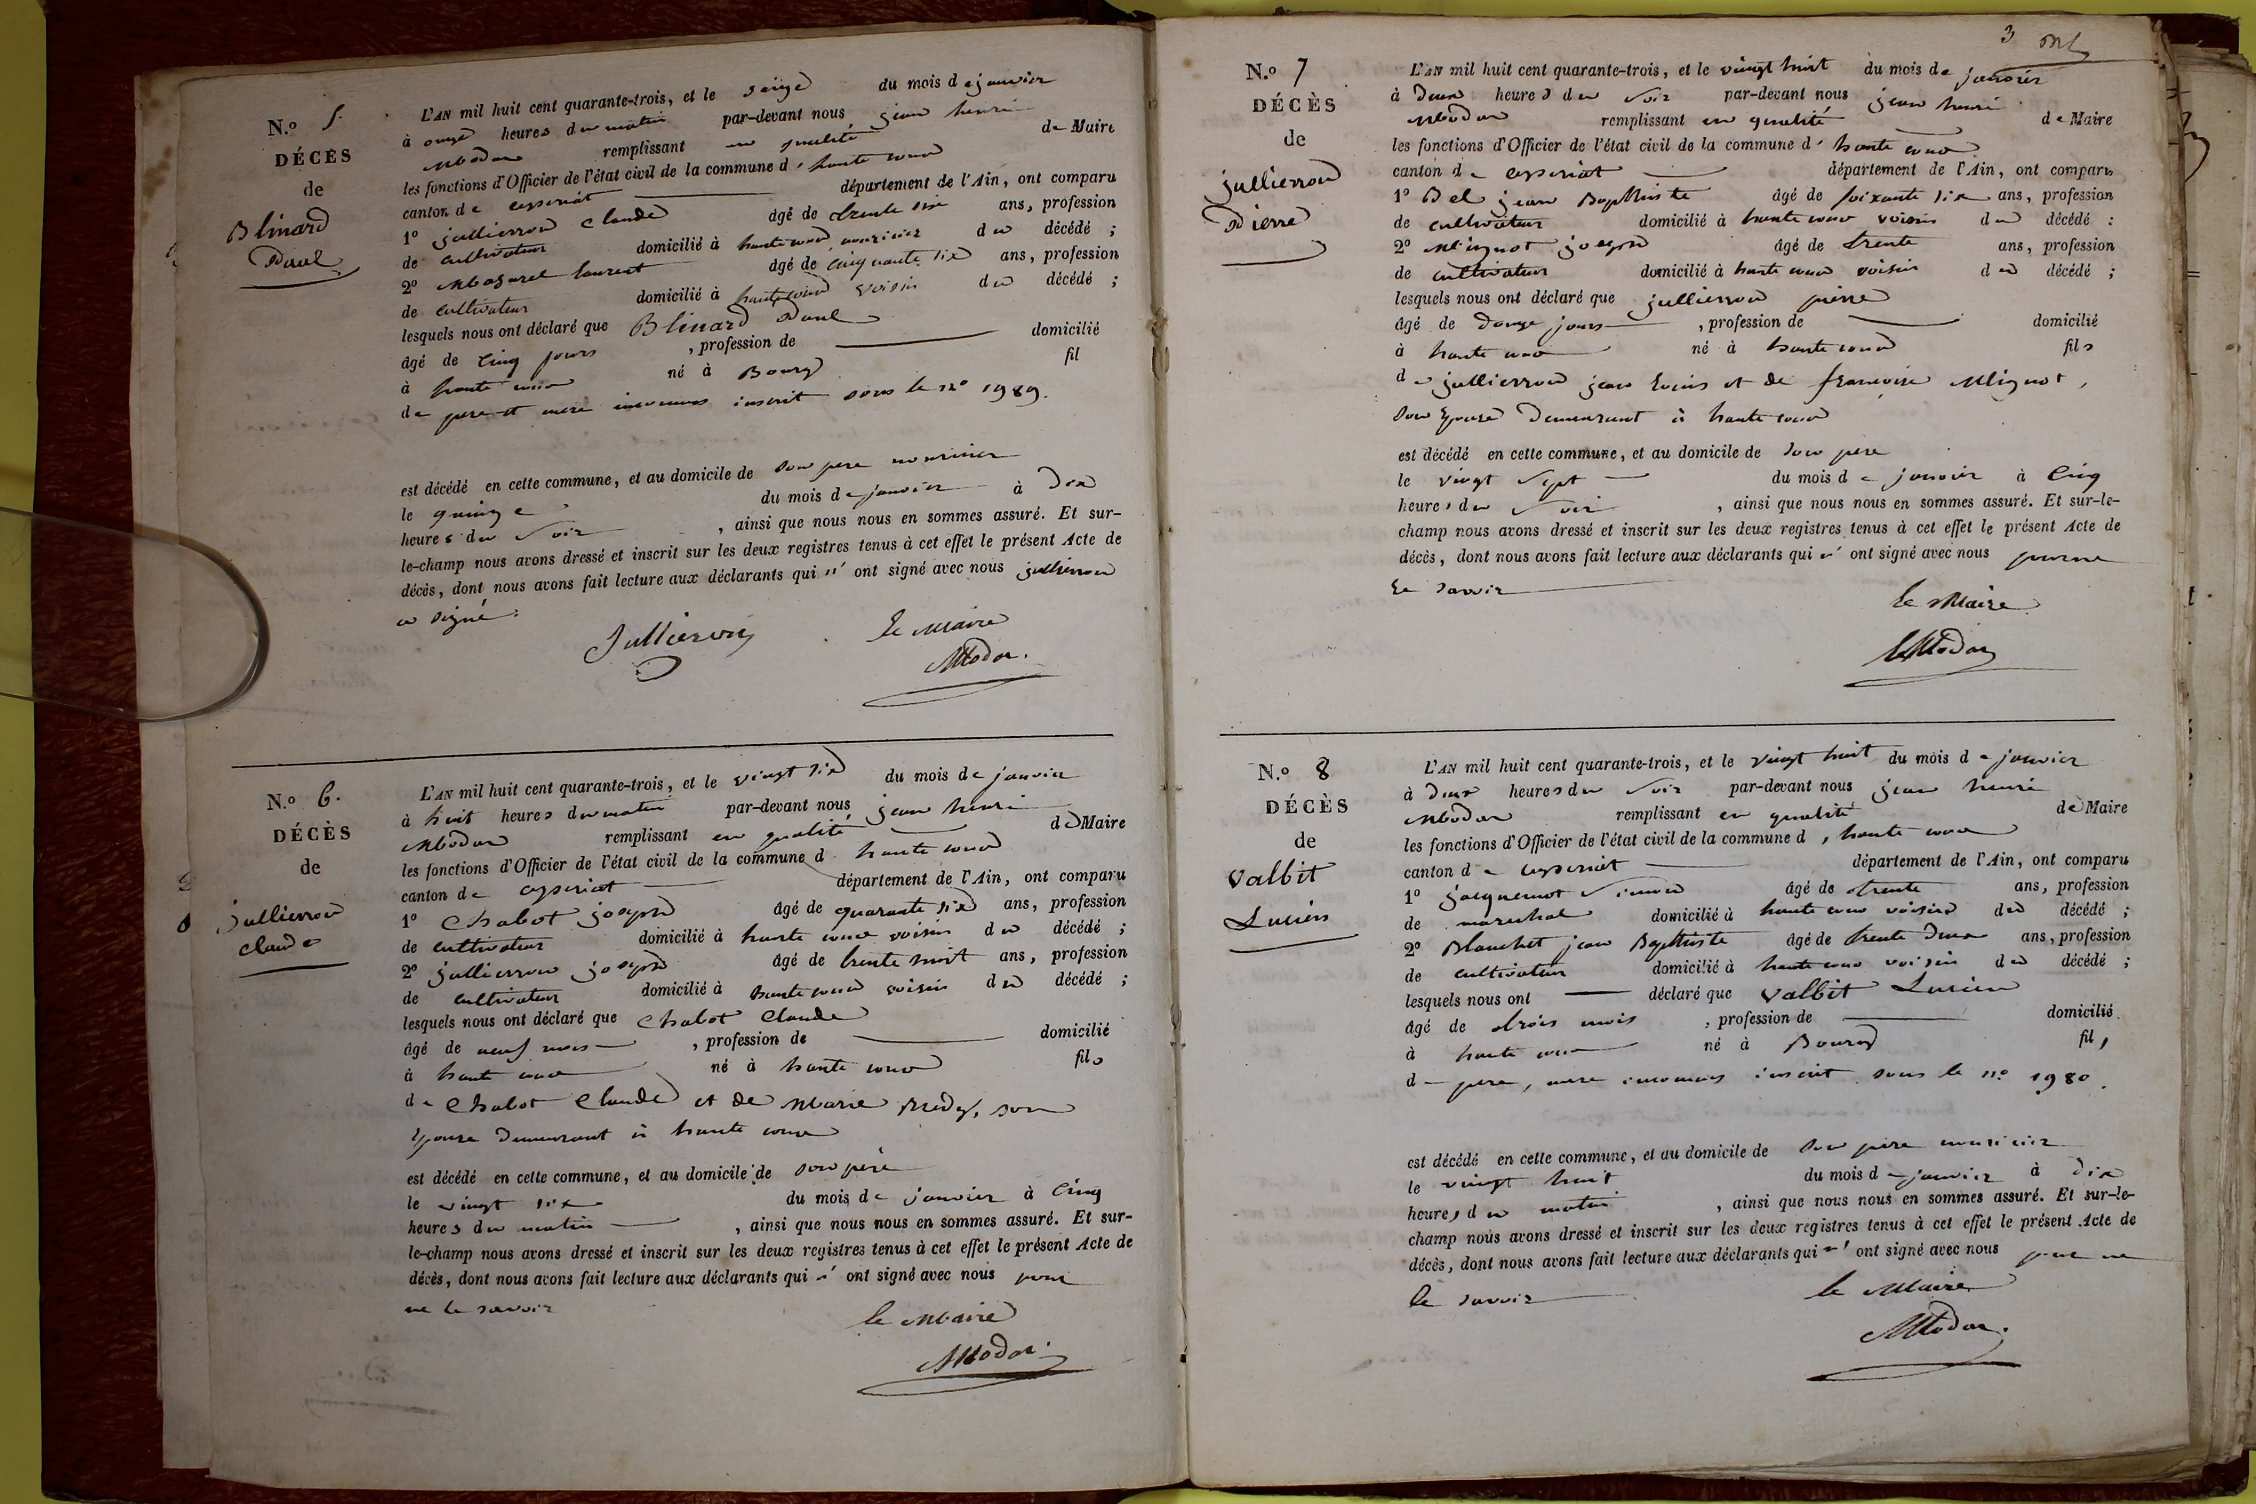 N.o 5.
DÉCÈS
de
Blinard
Paul
L'AN mil huit cent quarante-trois, et le seize du mois de janvier
à onze heures du matin par-devant nous jean henri
Modas remplissant en qualité de Maire
les fonctions d'Officier de l'état civil de la commune d'haute cour
canton de ceyseriat département de l'Ain, ont comparu
1o jullieron Claude âgé de trente six ans, profession
de cultivateur domicilié à haute cour nouricier du décédé ;
2o Mazuret laurent âgé de Cinquante six ans, profession
de cultivateur domicilié à haute cour voisin du décédé ;
lesquels nous ont déclaré que Blinard Paul
âgé de Cinq jours , profession de domicilié
à haute cour né à Bourg fil
de pere et mere inconnus inscrit sous le no 1989.
est décédé en cette commune, et au domicile de son pere nouricier
le quinze du mois de janvier à dix
heures du soir , ainsi que nous nous en sommes assuré. Et sur-
le-champ nous avons dressé et inscrit sur les deux registres tenus à cet effet le présent Acte de
décès, dont nous avons fait lecture aux déclarants qui n' ont signé avec nous jullieron
a signé.
Jullieron
le Maire
N.o 6.
DÉCÈS
de
Jullieron
Claude
L'AN mil huit cent quarante-trois, et le vingt six du mois de janvier
à huit heures du matin par-devant nous jean henri
Modas remplissant en qualité de Maire
les fonctions d'Officier de l'état civil de la commune d haute cour
canton de ceyseriat département de l'Ain, ont comparu
1o Chabot joseph âgé de quarante six ans, profession
de cultivateur domicilié à haute cour voisin du décédé ;
2o jullieron joseph âgé de trente huit ans, profession
de cultivateur domicilié à haute cour voisin du décédé ;
lesquels nous ont déclaré que Chabot Claude
âgé de neuf mois , profession de domicilié
à haute cour né à haute cour fils
de Chabot Claude et de Marie son
Epouse demeurant à haute cour
est décédé en cette commune, et au domicile de son père
le vingt six du mois de janvier à Cinq
heures du matin , ainsi que nous nous en sommes assuré. Et sur-
le-champ nous avons dressé et inscrit sur les deux registres tenus à cet effet le présent Acte de
décès, dont nous avons fait lecture aux déclarants qui n' ont signé avec nous pour
ne le savoir
le Maire
3
N.o 7
DÉCÈS
de
jullieron
Pierre
L'AN mil huit cent quarante-trois, et le vingt huit du mois de janvier
à Deux heures du soir par-devant nous jean henri
Modas remplissant en qualité de Maire
les fonctions d'Officier de l'état civil de la commune d'haute cour
canton de ceyseriat département de l'Ain, ont comparu
1o Bel jean Bapthiste âgé de soixante six ans, profession
de cultivateur domicilié à haute cour voisin du décédé :
2o Mignot joseph âgé de trente ans, profession
de cultivateur domicilié à haute cour voisin du décédé ;
lesquels nous ont déclaré que jullieron pierre
âgé de douze jours , profession de domicilié
à haute cour né à haute cour fils
de jullieron jean louis et de françoise Mignot,
son Epouse Demeurant à haute cour
est décédé en cette commune, et au domicile de son pere
le vingt sept du mois de janvier à Cinq
heures du soir , ainsi que nous nous en sommes assuré. Et sur-le-
champ nous avons dressé et inscrit sur les deux registres tenus à cet effet le présent Acte de
décès, dont nous avons fait lecture aux déclarants qui n' ont signé avec nous pour ne
le savoir
le Maire
N.o 8
DÉCÈS
de
Valbit
Lucien
L'AN mil huit cent quarante-trois, et le vingt huit du mois de janvier
à deux heures du soir par-devant nous jean henri
Modas remplissant en qualité de Maire
les fonctions d'Officier de l'état civil de la commune d, haute cour
canton de ceyseriat département de l'Ain, ont comparu
1o jacquemot Simon âgé de trente ans, profession
de marechal domicilié à haute cour voisin du décédé ;
2o Blanchet jean Baptthiste âgé de trente deux ans, profession
de cultivateur domicilié à haute cour voisin du décédé ;
lesquels nous ont déclaré que Valbit Lucien
âgé de trois mois , profession de domicilié
à haute cour né à Bourg fil,
de pere, mere inconnus inscrit sous le no 1980.
est décédé en cette commune, et au domicile de son père nouricier
le vingt huit du mois de janvier à dix
heures du matin , ainsi que nous nous en sommes assuré. Et sur-le-
champ nous avons dressé et inscrit sur les deux registres tenus à cet effet le présent Acte de
décès, dont nous avons fait lecture aux déclarants qui n' ont signé avec nous pour ne
le savoir
le Maire